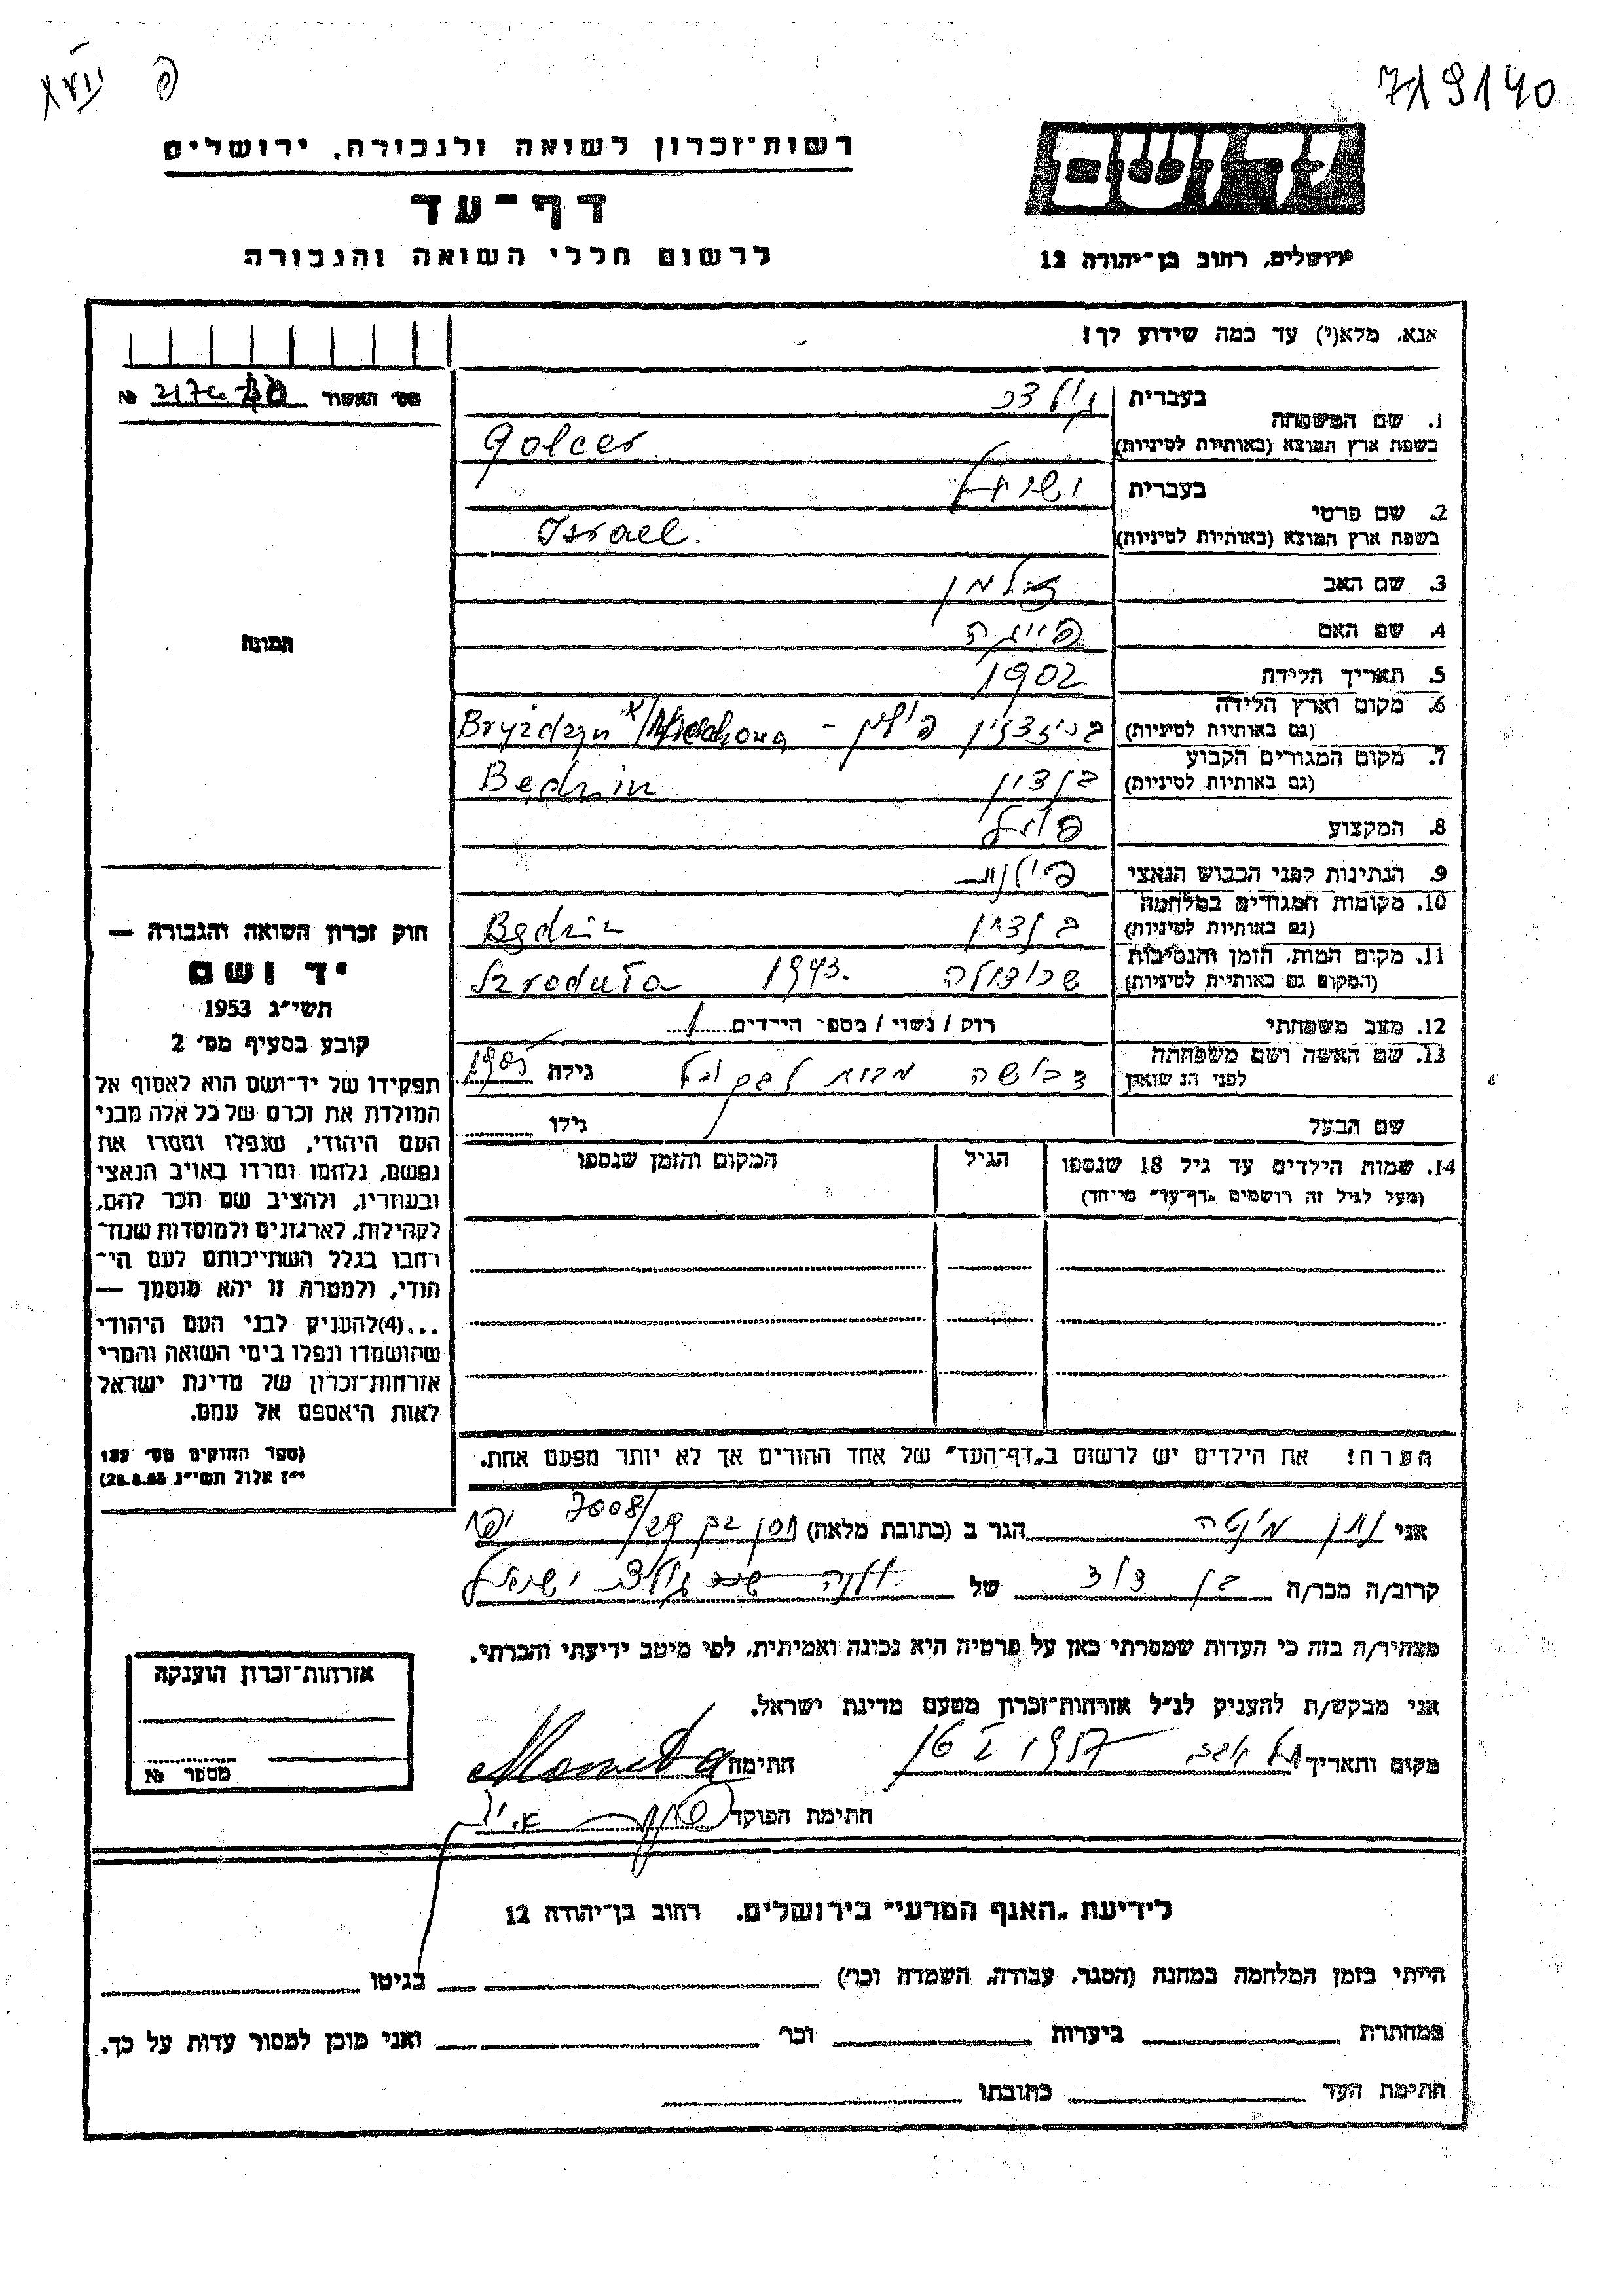 719140
רשות־זכרון לשואה ולגבורה, ירושלים
דף־עד
לרשום חללי השואה והגבורה
יד ושם
ירושלים, רחוב בן־יהודה 12
אנא, מלא(י) עד כמה שידוע לך!
מס' האשור №
1. שם המשפחה
בעברית
בשפת ארץ המוצא (באותיות לטיניות) Golcer
2. שם פרטי
בעברית ישראל
בשפת ארץ המוצא (באותיות לטיניות) Israel.
3. שם האב זלמן
4. שם האם פייגה
5. תאריך הלידה 1902
6. מקום וארץ הלידה
(גם באותיות לטיניות) פולין -
7. מקום המגורים הקבוע
(גם באותיות לטיניות) בנדין Będzin
8. המקצוע פועל
9. הנתינות לפני הכבוש הנאצי פולנית
10. מקומות המגורים במלחמה
(גם באותיות לטיניות) בנדין Będzin
11. מקום המות, הזמן והנסיבות
(המקום גם באותיות לטיניות) שרודולה 1943. Szroduła
12. מצב משפחתי רוק / נשוי / מספר הילדים 1
13. שם האשה ושם משפחתה
לפני הנשואין דבושה מבית גילה 1905
שם הבעל גילו
14. שמות הילדים עד גיל 18 שנספו
(מעל לגיל זה רושמים "דף־עד" מיוחד)
הגיל
המקום והזמן שנספו
הערה! את הילדים יש לרשום ב"דף־העד" של אחד ההורים אך לא יותר מפעם אחת.
תמונה
חוק זכרון השואה והגבורה —
יד ושם
תשי"ג 1953
קובע בסעיף מס' 2
תפקידו של יד־ושם הוא לאסוף אל
המולדת את זכרם של כל אלה מבני
העם היהודי, שנפלו ומסרו את
נפשם, נלחמו ומרדו באויב הנאצי
ובעוזריו, ולהציב שם וזכר להם,
לקהילות, לארגונים ולמוסדות שנח־
רבו בגלל השתייכותם לעם הי־
הודי, ולמטרה זו יהא מוסמך —
...(4)להעניק לבני העם היהודי
שהושמדו ונפלו בימי השואה והמרי
אזרחות־זכרון של מדינת ישראל
לאות היאספם אל עמם.
(ספר החוקים מס' 132
י"ז אלול תשי"ג 28.8.53)
אני נתן הגר ב (כתובת מלאה) יפו
קרוב/ה מכר/ה בן דוד של גולצר ישראל
מצהיר/ה בזה כי העדות שמסרתי כאן על פרטיה היא נכונה ואמיתית, לפי מיטב ידיעתי והכרתי.
אני מבקש/ת להעניק לנ"ל אזרחות־זכרון מטעם מדינת ישראל.
מקום ותאריך תל אביב 16 I 1957 חתימה
חתימת הפוקד
אזרחות־זכרון הוענקה
מספר №
לידיעת "האגף המדעי" בירושלים, רחוב בן־יהודה 12
הייתי בזמן המלחמה במחנה (הסגר, עבודה, השמדה וכו') בגיטו
במחתרת ביערות וכו' ואני מוכן למסור עדות על כך.
חתימת העד כתובתו